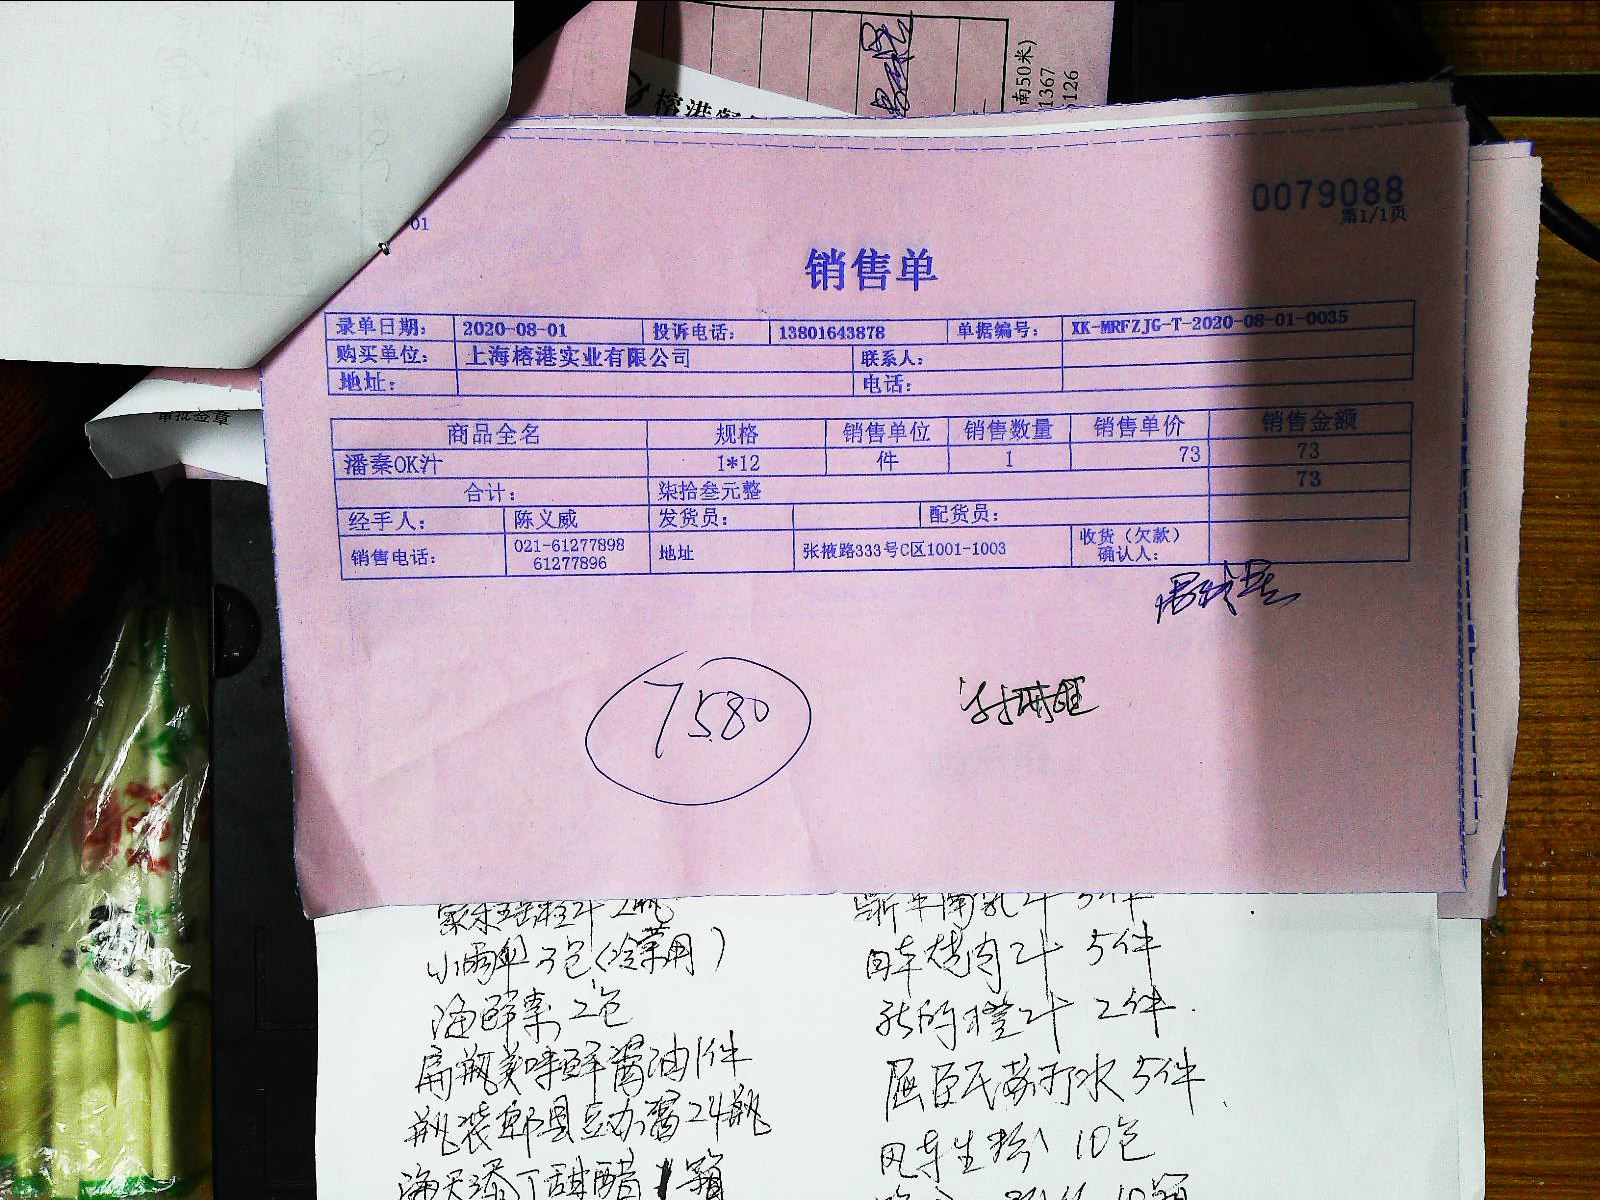 南50米)
1367
6126
榕港
0079088
第1/1页
01
销售单
录单日期: 2020-08-01 投诉电话: 13801643878 单据编号: XK-MRFZJG-T-2020-08-01-0035
购买单位: 上海榕港实业有限公司 联系人:
地址: 电话:
商品全名 规格 销售单位 销售数量 销售单价 销售金额
潘秦OK汁 1*12 件 1 73 73
合计: 柒拾叁元整 73
经手人: 陈义威 发货员: 配货员:
销售电话: 021-61277898 61277896 地址 张掖路333号C区1001-1003 收货(欠款)确认人:
审批签章
7580
3包(冷菜用)
海鲜素 2包
扁瓶美味鲜酱油1件
瓶装郫县豆办酱24瓶
海天添丁甜醋1箱
5件
烤肉汁 5件
橙汁 2件
屈臣氏苏打水5件
风车生粉 10包